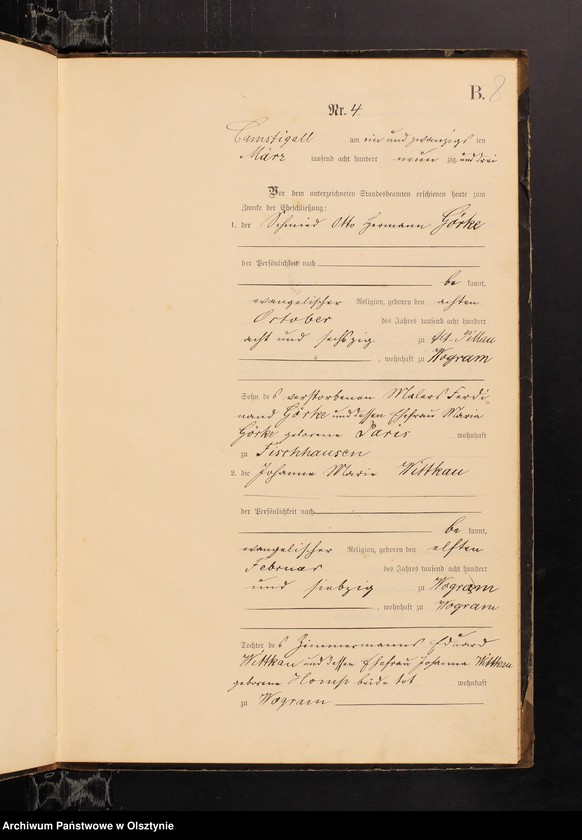 B. 8
Nr. 4
Camstigall am ein und zwanzigsten
März tausend acht hundert neun zig und drei
Vor dem unterzeichneten Standesbeamten erschienen heute zum
Zwecke der Eheschließung:
1. der Schmied Otto Hermann Görke
der Persönlichkeit nach
be kannt,
evangelischer Religion, geboren den achten
October des Jahres tausend acht hundert
acht und sechszig zu Alt-Pillau
, wohnhaft zu Wogram
Sohn des verstorbenen Malers Ferdi-
nand Görke und dessen Ehefrau Maria
Görke geborene Paris wohnhaft
zu Fischhausen
2. die Johanne Marie Wittkau
der Persönlichkeit nach
be kannt,
evangelischer Religion, geboren den elften
Februar des Jahres tausend acht hundert
und siebzig zu Wogram
, wohnhaft zu Wogram
Tochter des Zimmermanns Eduard
Wittkau und dessen Ehefrau Johanna Wittkau
geborene beide tot wohnhaft
zu Wogram
Archiwum Państwowe w Olsztynie